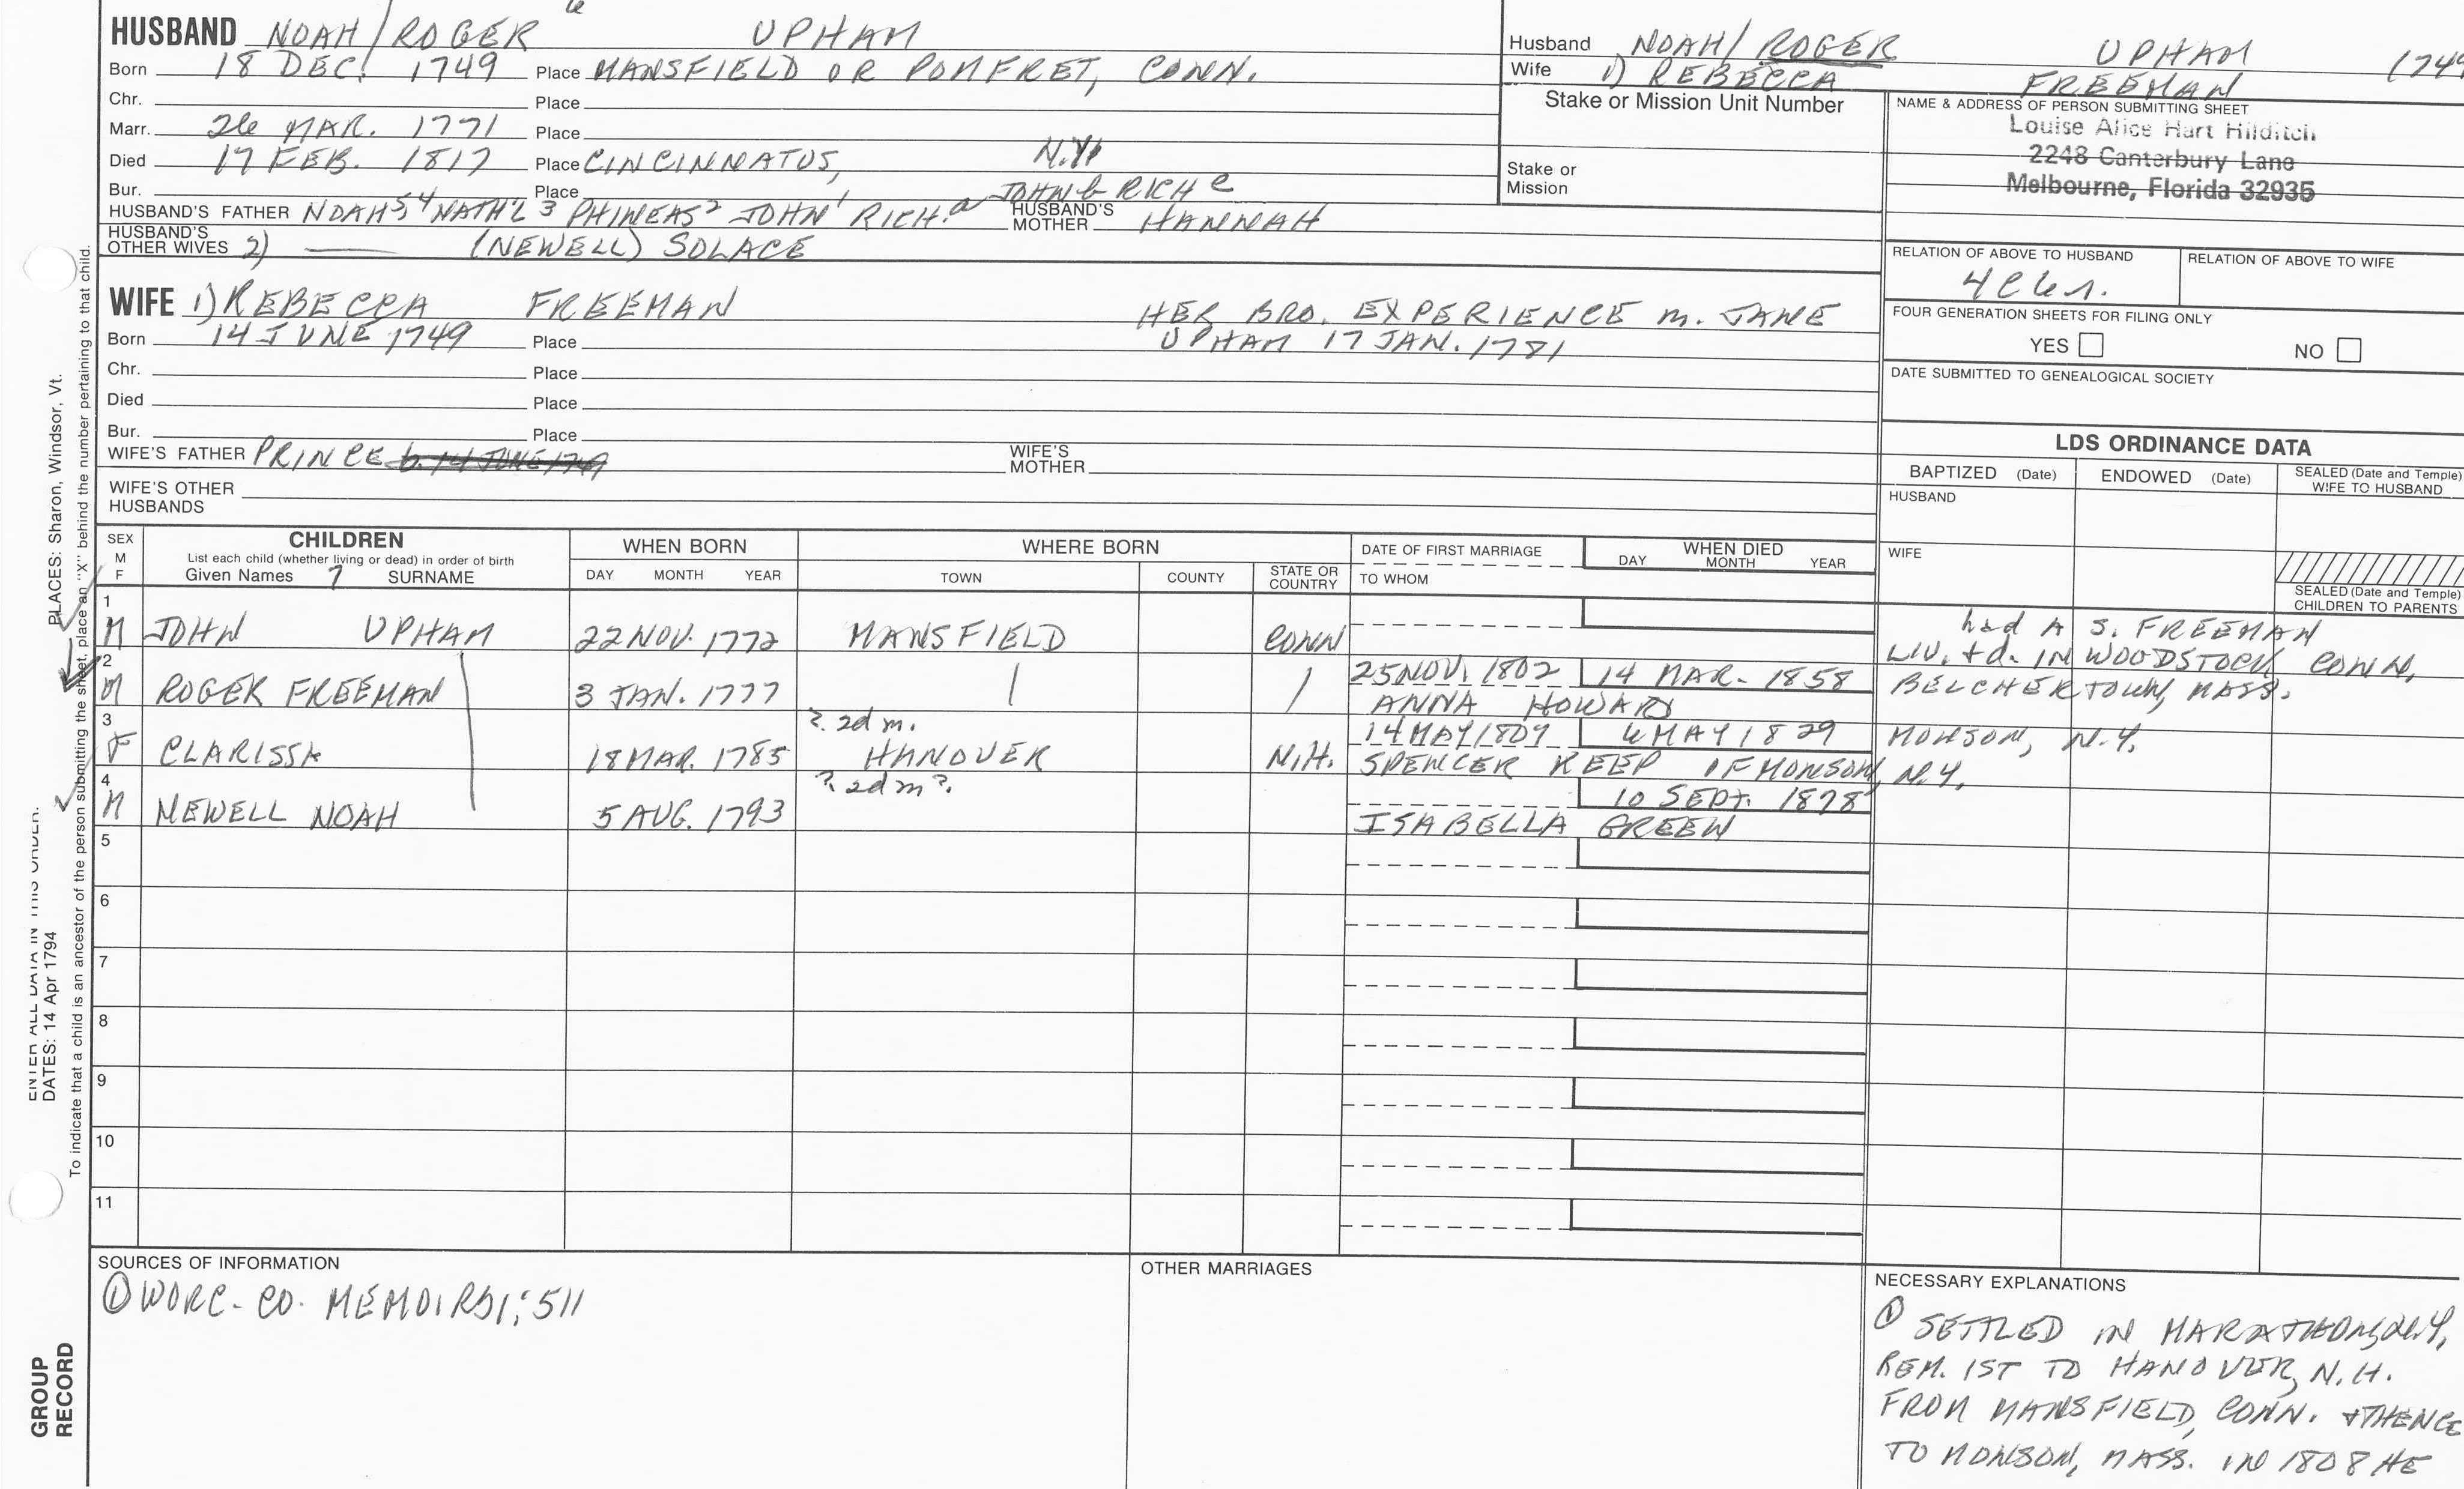 HUSBAND NOAH/ROGER 6 UPHAM
Born 18 DEC. 1749 Place MANSFIELD OR POMFRET, CONN.
Chr. Place
Marr. 26 MAR. 1771 Place
Died 17 FEB. 1817 Place CINCINNATUS, N.Y.
Bur. Place
HUSBAND'S FATHER NOAH5 4 NATH'L 3 PHINEAS2 JOHN1 RICH.a JOHN b RICH c HUSBAND'S MOTHER HANNAH
HUSBAND'S OTHER WIVES 2) (NEWELL) SOLACE
Husband NOAH/ROGER UPHAM 1749
Wife 1) REBECCA FREEMAN
Stake or Mission Unit Number
Stake or
Mission
NAME & ADDRESS OF PERSON SUBMITTING SHEET
Louise Alice Hart Hilditch
2248 Canterbury Lane
Melbourne, Florida 32935
RELATION OF ABOVE TO HUSBAND RELATION OF ABOVE TO WIFE
FOUR GENERATION SHEETS FOR FILING ONLY
YES NO
DATE SUBMITTED TO GENEALOGICAL SOCIETY
WIFE 1) REBECCA FREEMAN HER BRO. EXPERIENCE m. JANE
Born 14 JUNE 1749 Place UPHAM 17 JAN. 1781
Chr. Place
Died Place
Bur. Place
WIFE'S FATHER PRINCE b. 14 JUNE 1749 WIFE'S MOTHER
WIFE'S OTHER
HUSBANDS
LDS ORDINANCE DATA
BAPTIZED (Date) ENDOWED (Date) SEALED (Date and Temple) WIFE TO HUSBAND
HUSBAND
WIFE
SEALED (Date and Temple)
CHILDREN TO PARENTS
SEX M F
CHILDREN
List each child (whether living or dead) in order of birth
Given Names 7 SURNAME
WHEN BORN
DAY MONTH YEAR
WHERE BORN
TOWN COUNTY STATE OR COUNTRY
DATE OF FIRST MARRIAGE
TO WHOM
WHEN DIED
DAY MONTH YEAR
1 M JOHN UPHAM 22 NOV. 1772 MANSFIELD CONN had A S. FREEMAN
LIV. + d. IN WOODSTOCK CONN,
2 M ROGER FREEMAN 3 JAN. 1777 25 NOV. 1802 14 MAR. 1858 BELCHERTOWN, MASS.
ANNA HOWARD
3 ? 2d m. 14 MAY 1809 6 MAY 1829 MONSON, N.Y.
F CLARISSA 18 MAR. 1785 HANOVER N.H. SPENCER KEEP OF MONSON, N.Y.
4 ? 2d m ? 10 SEPT. 1878
M NEWELL NOAH 5 AUG. 1793 ISABELLA GREEN
5
6
7
8
9
10
11
SOURCES OF INFORMATION
① WORC. CO. MEMOIRS 1; 511
OTHER MARRIAGES
NECESSARY EXPLANATIONS
① SETTLED IN MARATHON, N.Y.
REM. 1ST TO HANOVER, N.H.
FROM MANSFIELD, CONN. + THENCE
TO MONSON, MASS. IN 1808 HE
PLACES: Sharon, Windsor, Vt.
To indicate that a child is an ancestor of the person submitting the sheet, place an "X" behind the number pertaining to that child.
ENTER ALL DATA IN THIS ORDER:
DATES: 14 Apr 1794
GROUP
RECORD